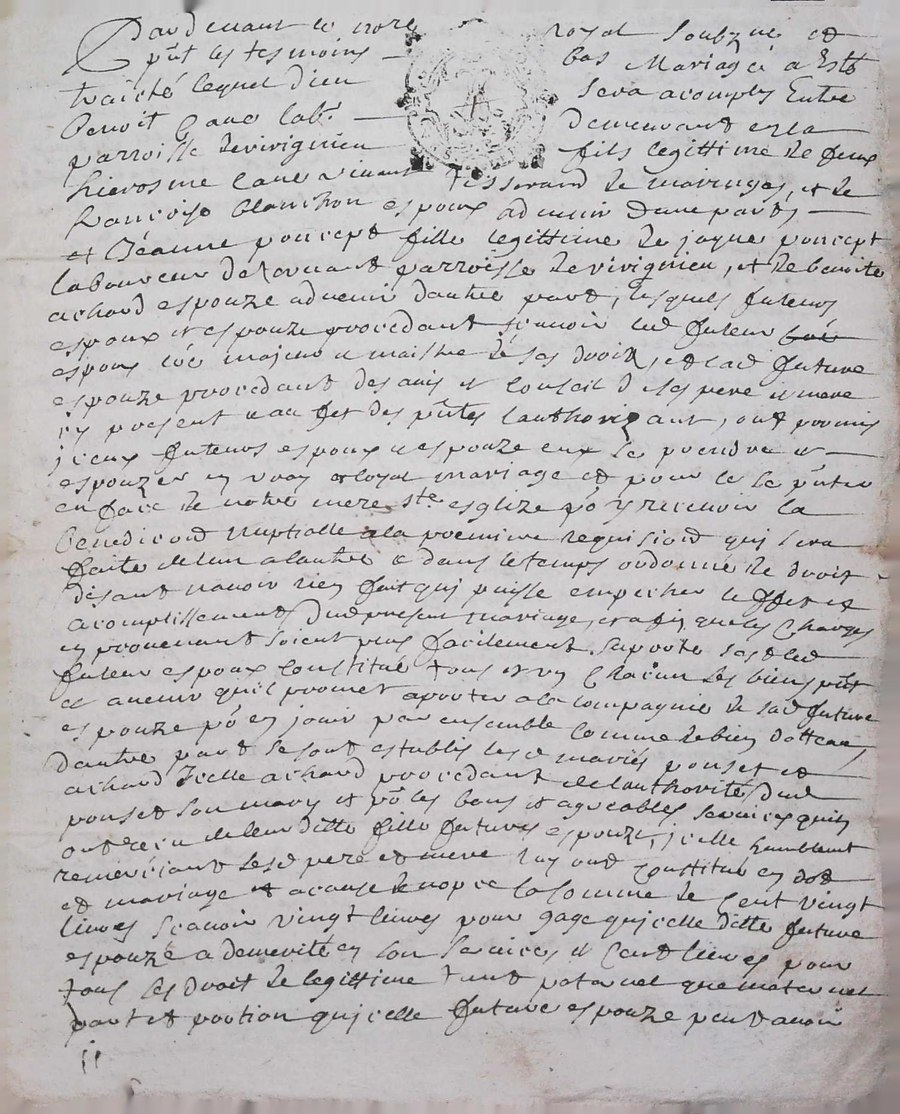 Pardevant le nore royal soubzne et
pnt les tesmoins bas Mariage a Esté
traicté lequel dieu sera acomply Entre
Benoit lab. demeurant en la
parroisse de virignieu fils legittime de feux
hierosme vivant tisserand de maringes, et de
francoise blanchon espoux advenir dune part,
et Jeanne poncept fille legittime de jaque poncept
laboureur de parroisse de virignieu, et de benoite
achard espouze advenir dautre part, lesquels futeurs
espoux et espouze procedant scavoir led futeur
espoux majeur et maistre de ses droix, et lad future
espouze procedant des avis et conseil de ses pere et mere
icy present et au fet des pntes lauthorizant, ont promis
jceux futeurs espoux et espouze eux se prendre et
espouzer en vray et loyal mariage et pour ce se pnter
en face de notre mere ste esglize po y recevoir la
benediction nuptialle a la premiere requisiond qui sera
faite de lun a lautre et dans le temps ordonné de droit
disant navoir rien fait qui puisse empecher leffet et
acomplissement dud present mariage, et afin que les Charges
en provenant soient plus facilement suportés led
futeur espoux constitue tous et un chacun ses biens pnt
et avenir quil promet aporter a la compagnie de sad future
espouze po en jouir par ensemble comme de bien dotteaux,
dautre part se sont establis lesd mariés ponset et
achard Icelle achard procedant de lauthorité dud
ponset son mary et po les bons et agreables services quils
ont receu de leur ditte fille future espouze, jcelle humblement
remerciant lesd pere et mere luy ont constitué en dot
et mariage et a cause de nopce la somme de cent vingt
livres scavoir vingt livres pour gage qui celle ditte future
espouze a demerité en son services et cent livres pour
tous les droit de legittime tant paternel que maternel
part et portion qui celle future espouze peut avoir